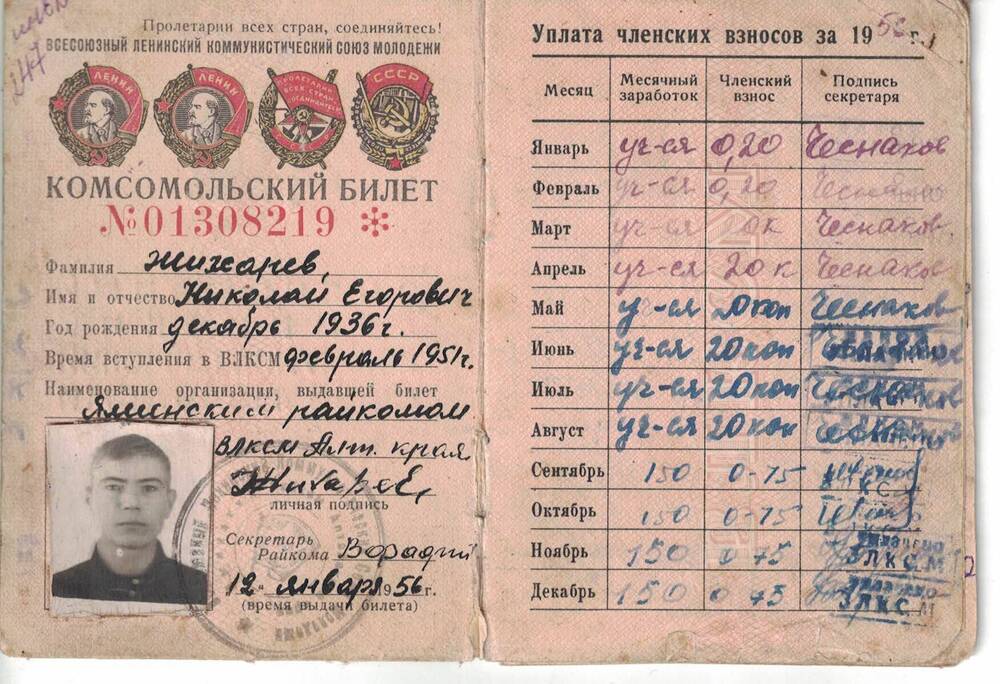 Пролетарии всех стран, соединяйтесь!
ВСЕСОЮЗНЫЙ ЛЕНИНСКИЙ КОММУНИСТИЧЕСКИЙ СОЮЗ МОЛОДЕЖИ
ЛЕНИН ЛЕНИН ПРОЛЕТАРИИ ВСЕХ СТРАН СССР
КОМСОМОЛЬСКИЙ БИЛЕТ
№ 01308219
Фамилия Жихарев,
Имя и отчество Николай Егорович
Год рождения декабрь 1936 г.
Время вступления в ВЛКСМ февраль 1951 г.
Наименование организации, выдавшей билет
райкомом
ВЛКСМ Алт. края
Жихарев,
личная подпись
Секретарь
Райкома
12 " января 1956 г.
(время выдачи билета)
Уплата членских взносов за 1956 г.
Месяц Месячный заработок Членский взнос Подпись секретаря
Январь уч-ся 0,20 Чеснаков
Февраль уч-ся 0,20
Март уч-ся 20 к Чеснаков
Апрель уч-ся 20 к Чеснаков
Май у-ся 20 коп Чеснаков
Июнь уч-ся 20 коп
Июль уч-ся 20 коп
Август уч-ся 20 коп
Сентябрь 150 0-75
Октябрь 150 0-75
Ноябрь 150 0 75 ВЛКСМ
Декабрь 150 0 75 ВЛКСМ